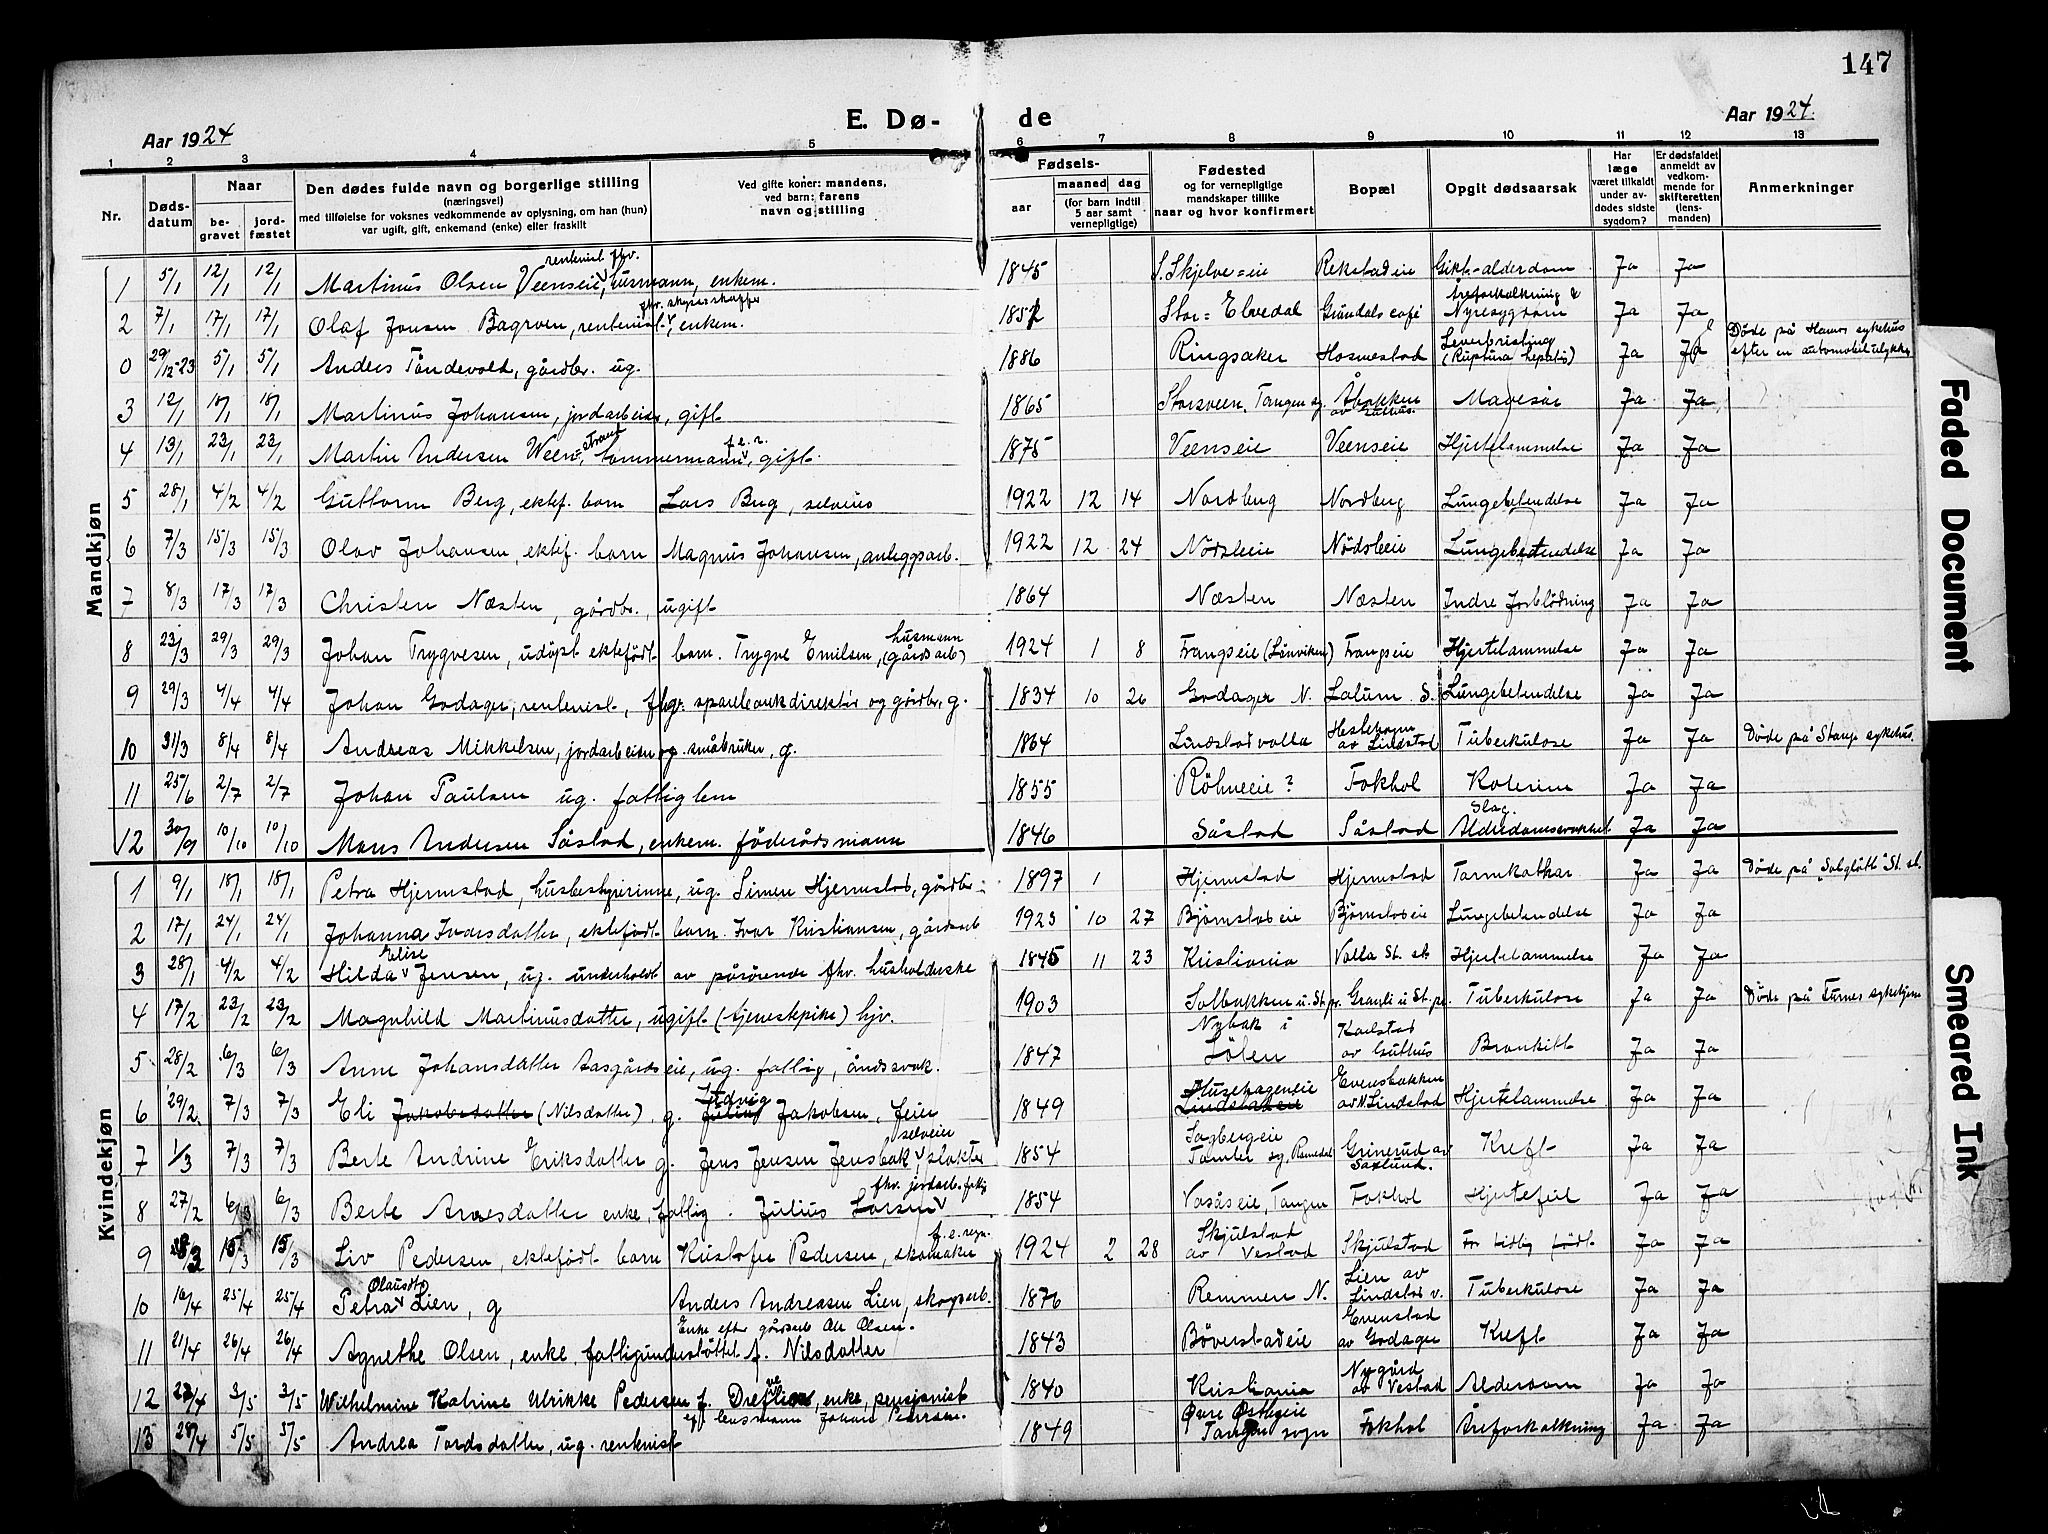 147
E. Dø- de
Aar 1924
Aar 1924.
1 2 3 4 5 6 7 8 9 10 11 12 13
Nr.
Døds-datum
Naar
be-gravet
jord-fæstet
Den dødes fulde navn og borgerlige stilling
(næringsvei)
med tilføielse for voksnes vedkommende av oplysning, om han (hun)
var ugift, gift, enkemand (enke) eller fraskilt
Ved gifte koner: mandens,
ved barn: farens
navn og stilling
Fødsels-
aar
maaned dag
(for barn indtil
5 aar samt
vernepligtige)
Fødested
og for vernepligtige
mandskaper tillike
naar og hvor konfirmert
Bopæl
Opgit dødsaarsak
Har
læge
været tilkaldt
under av-
dødes sidste
sygdom?
Er dødsfaldet
anmeldt av
vedkom-
mende for
skifteretten
(lens-
manden)
Anmerkninger
Mandkjøn
1 5/1 12/1 12/1 Martinus Olsen Veenseie, rentenist fhv. husmann, enkem. 1845 S. Skjelve=eie Rekstadeie Gikt-alderdom Ja Ja
2 7/1 17/1 17/1 Olaf Jonsen Bagroen, rentenist, fhv. skysskaffer enkem. 1852 Stor=Elvedal Gründals café Åreforkalkning & Nyresygdom Ja Ja
0 29/12-23 5/1 5/1 Anders Tøndevold, gårdbr. ug. 1886 Ringsaker Hosmestad Leverbristing (Ruptura hepatis) Ja Ja Døde på Hamar sykehus efter en automobilulykke
3 12/1 18/1 18/1 Martinus Johansen, jordarbeider, gift 1865 Storsveen, Tangen sg. Åbakken Mavesår Ja Ja
4 13/1 23/1 23/1 Martin Andersen Ween=strand, tømmermann f.e.r., gift. 1875 Veenseie Veenseie Hjertelammelse Ja Ja
5 28/1 4/2 4/2 Guttorm Berg, ektef. barn Lars Berg, selveier 1922 12 14 Nordberg Nordberg Lungebetendelse Ja Ja
6 7/3 15/3 15/3 Olav Johansen, ektef. barn Magnus Johansen, anleggsarb. 1922 12 24 Nødsleeie Nødsleeie Lungebetendelse Ja Ja
7 8/3 17/3 17/3 Christen Næsten, gårdbr., ugift 1864 Næsten Næsten Indre forblødning Ja Ja
8 23/3 29/3 29/3 Johan Trygvesen, udøpt ektefødt barn. Trygve Emilsen, husmann (gårdsarb) 1924 1 8 Frangseie (Lønviken) Frangseie Hjertelammelse Ja Ja
9 29/3 4/4 4/4 Johan Godager, rentenist, fhv. sparebankdirektør og gårdbr, g. 1834 10 26 Godager N. Lalum S. Lungebetendelse Ja Ja
10 31/3 8/4 8/4 Andreas Mikkelsen, jordarbeider og småbruker, g. 1864 Lindstadvolla Hestehagen av Lindstad Tuberkulose Ja Ja Døde på Stange sykehus.
11 25/6 2/7 2/7 Johan Paulsen ug. fattiglem 1855 Røhneeie? Fokhol Kolerine Ja Ja
12 30/9 10/10 10/10 Mons Andersen Såstad, enkem. føderådsmann 1846 Såstad Såstad Slag Alderdomssvakhet Ja Ja
Kvindekjøn
1 9/1 18/1 18/1 Petra Hjermstad, husbestyrerinne, ug. Simen Hjermstad, gårdbr 1897 1 Hjermstad Hjermstad Tarmkatarr Ja Ja Døde på "Solgløtt" i St. al.
2 17/1 24/1 24/1 Johanna Ivarsdatter, ektefødt barn. Ivar Kristiansen, gårdsarb 1923 10 27 Bjørnstadeie Bjørnstadeie Lungebetendelse Ja Ja
3 28/1 4/2 4/2 Hilda Elise Jensen, ug. underholdt av pårørende fhv. husholderske 1845 11 23 Kristiania Volla St. al. Hjertelammelse Ja Ja
4 17/2 23/2 23/2 Magnhild Martinusdatter, ugift (tjenestepike) hjv. 1903 Solbakken u. St. pr. Granli u St. pr. Tuberkulose Ja Ja Døde på Furnes sykehjem
5 28/2 6/3 6/3 Anne Johansdatter Aasgårdseie, ug. fattig, åndssvak. 1847 Nybak i Løten Karlstad av Guthus Bronkitt Ja Ja
6 29/2 7/3 7/3 Eli Jakobsdatter (Nilsdatter), g. Ludvig Julius Jakobsen, feier 1849 Husehageneie Lindstadeie Evensbakken av N. Lindstad Hjertelammelse Ja Ja
7 1/3 7/3 7/3 Berte Andrine Eriksdatter g. Jens Jensen Jensbak, selveier slakter 1854 Sagbergeie Tomter sg. Romedal Grinerud av Saxlund. Kreft Ja Ja
8 27/2 6/3 6/3 Berte Arnesdatter enke, fattig. Julius Larsen fhv. jordarb. 1854 Vasåseie, Tangen Fokhol Hjertefeil Ja Ja
9 15/3 15/3 Liv Pedersen, ektefødt barn Kristofer Pedersen, skomaker 1924 2 28 Skjulstad av Vestad Skjulstad For tidlig født Ja Ja
10 16/4 25/4 25/4 Petra Olausdtr Lien, g Anders Andreasen Lien, skogsarb. 1876 Remmen N. Lien av Lindstad v. Tuberkulose Ja Ja
11 21/4 26/4 26/4 Agnethe Olsen, enke, fattigunderstøttet f. Nilsdatter Enke efter gårdsarb Ole Olsen. 1843 Bøverstadeie Evenstad av Godager Kreft Ja Ja
12 27/4 3/5 3/5 Wilhelmine Katrine Ulrikke Pedersen f. enke, pensjonist eft. lensmann Johan Pedersen. 1840 Kristiania Nygård av Vestad Alderdom Ja Ja
13 29/4 5/5 5/5 Andrea Tordsdatter, ug. rentenist 1849 Øvre Tangen sogn Fokhol Åreforkalkning Ja Ja
Faded Document
Smeared Ink